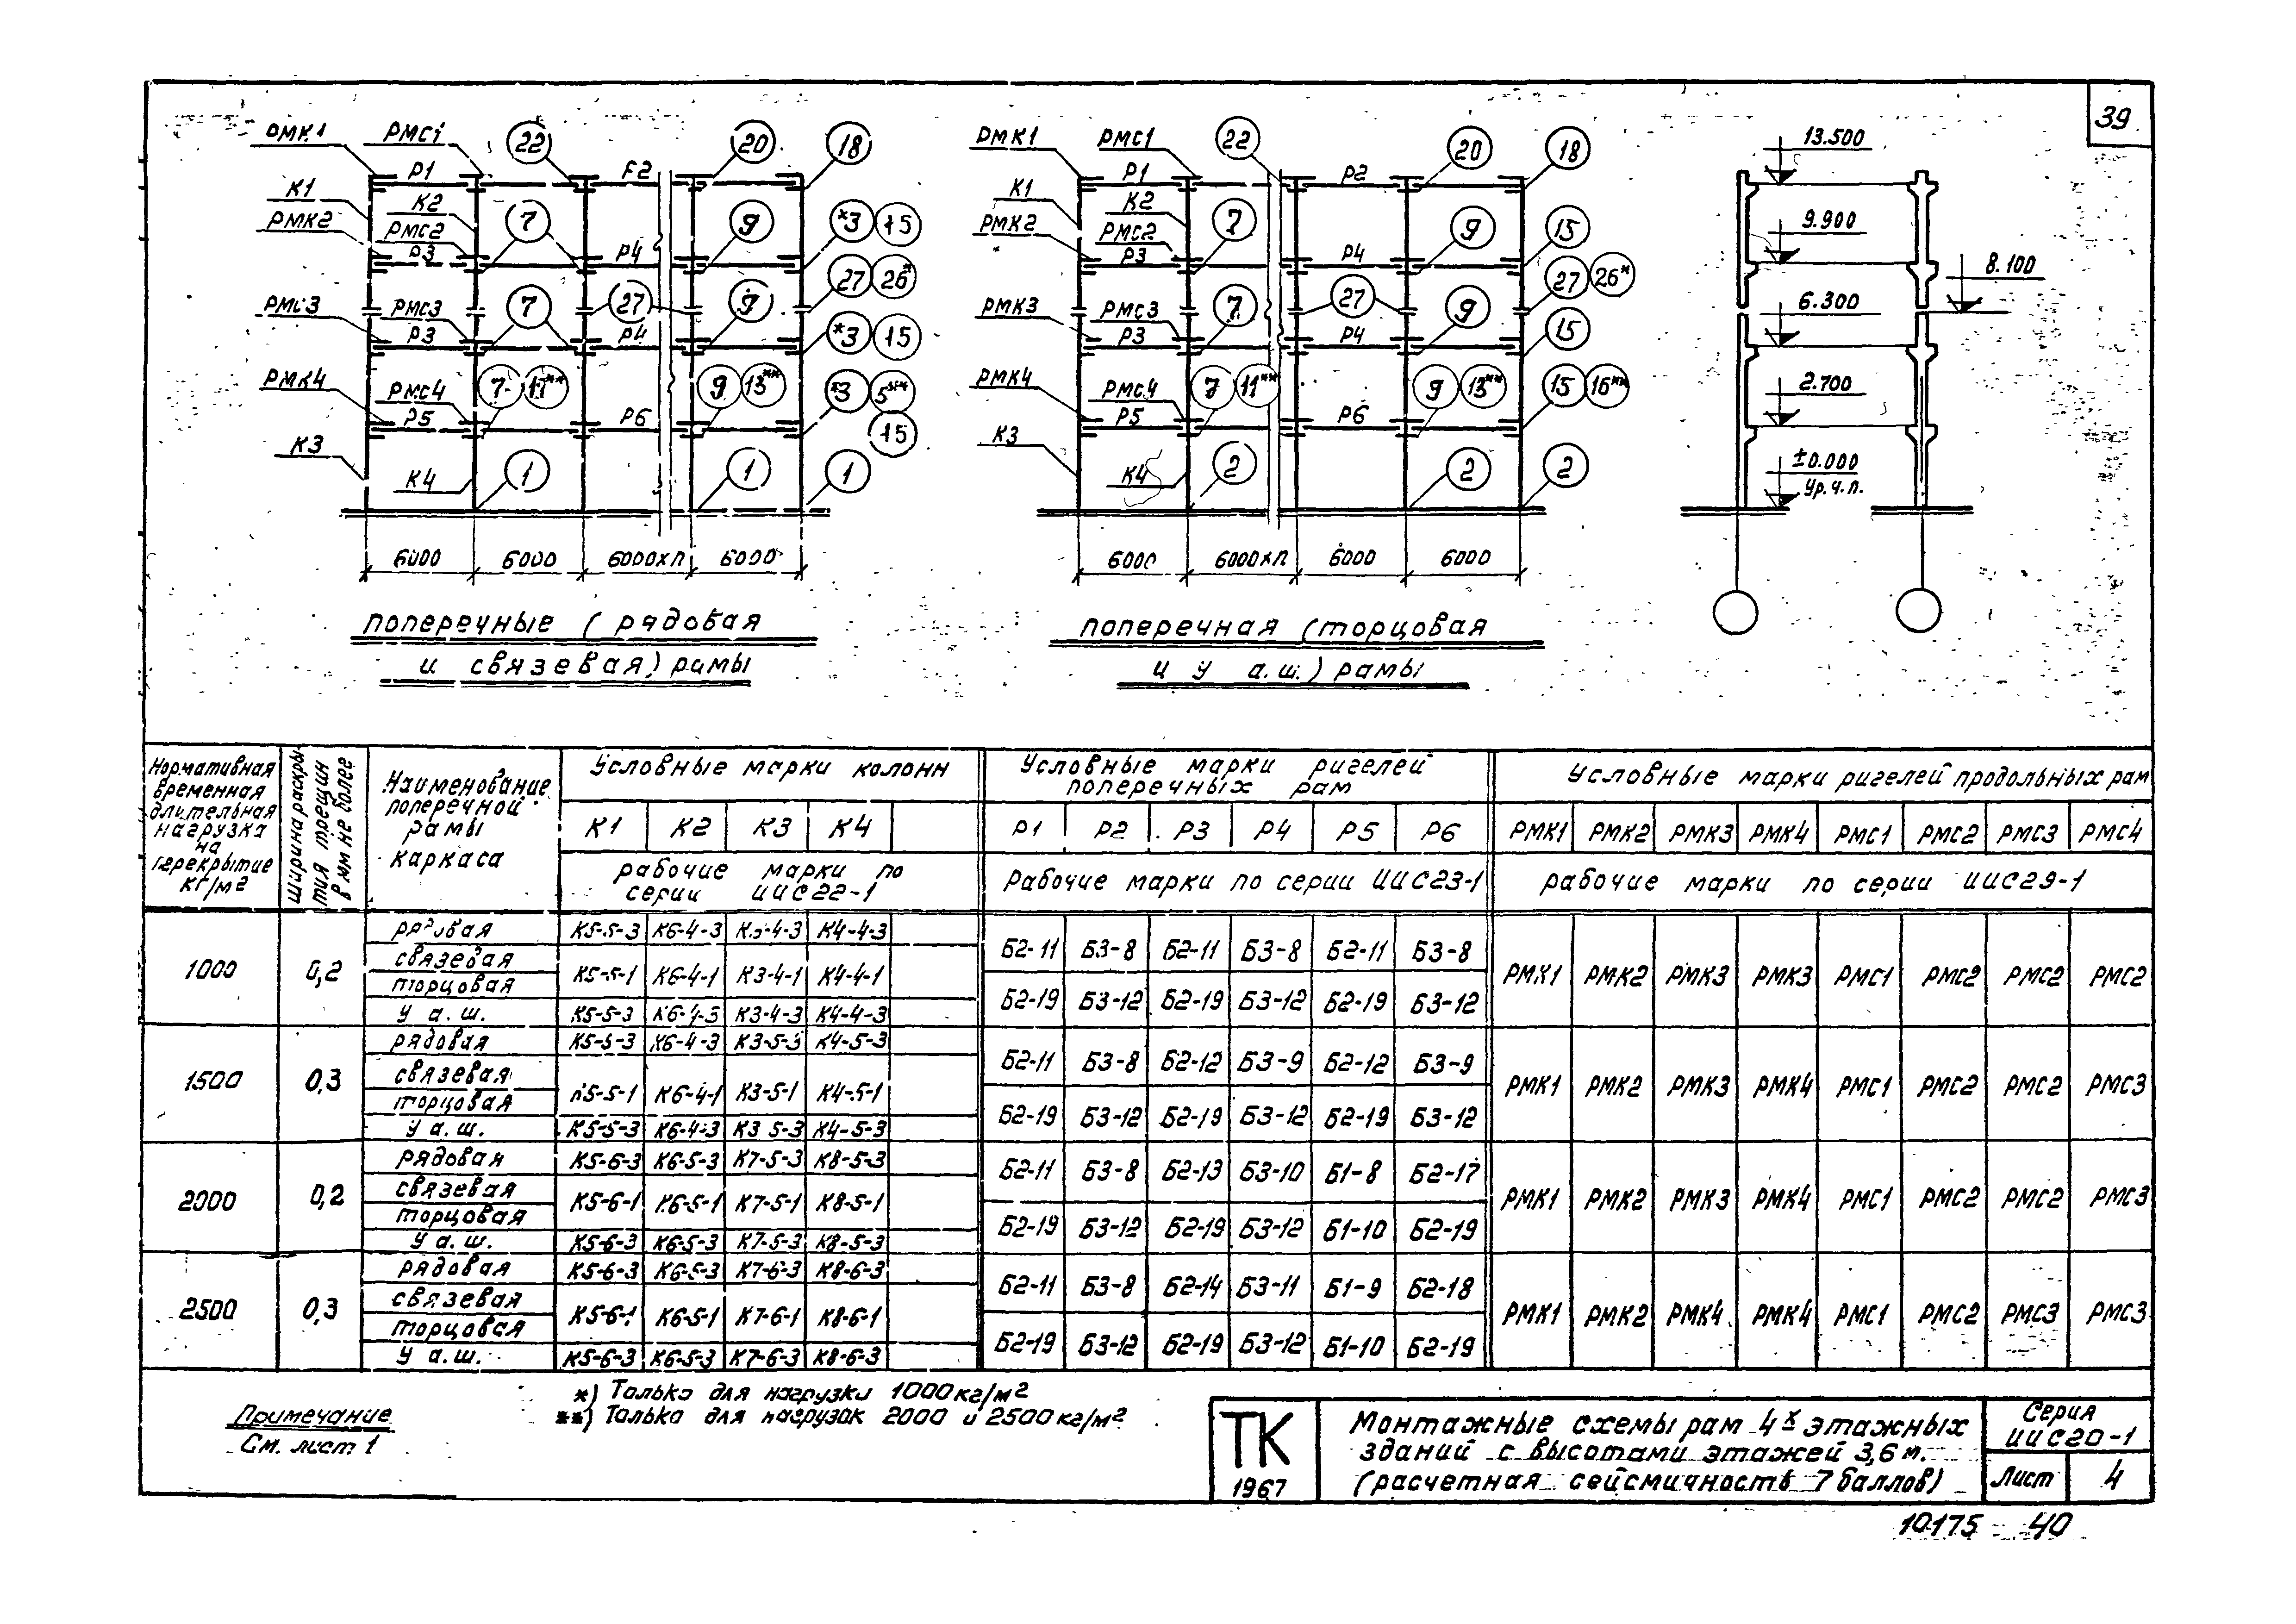 39
РМК1 РМС1 22 20 18
К1 Р1 Р2
РМК2 К2 7 9 *3 15
РМС2 Р3 Р4
27 26*
РМС3 РМС3 7 27 9
Р3 Р4 *3 15
РМК4 РМС4 7 11** 9 13** *3 5**
Р5 Р6 15
К3 К4 1 1 1
6000 6000 6000хп 6000
поперечные (рядовая
и связевая) рамы
РМК1 РМС1 22 20 18
К1 Р1 Р2
РМК2 К2 7 9 15
РМС2 Р3 Р4
27 26*
РМК3 РМС3 7 27 9
Р3 Р4 15
РМК4 РМС4 7 11** 9 13** 15 16**
Р5 Р6
К3 К4 2 2 2
6000 6000хп 6000 6000
поперечная (торцовая
и у а.ш.) рамы
13.500
9.900
8.100
6.300
2.700
±0.000
Ур.ч.п.
Нормативная временная длительная нагрузка на перекрытие кг/м2
Ширина раскрытия трещин в мм не более
Наименование поперечной рамы каркаса
Условные марки колонн
К1 К2 К3 К4
рабочие марки по серии ИИС22-1
Условные марки ригелей поперечных рам
Р1 Р2 Р3 Р4 Р5 Р6
Рабочие марки по серии ИИС23-1
Условные марки ригелей продольных рам
РМК1 РМК2 РМК3 РМК4 РМС1 РМС2 РМС3 РМС4
рабочие марки по серии ИИС29-1
1000 0,2
рядовая К5-5-3 К6-4-3 К3-4-3 К4-4-3
связевая
торцовая К5-5-1 К6-4-1 К3-4-1 К4-4-1
у а.ш. К5-5-3 К6-4-3 К3-4-3 К4-4-3
Б2-11 Б3-8 Б2-11 Б3-8 Б2-11 Б3-8
Б2-19 Б3-12 Б2-19 Б3-12 Б2-19 Б3-12
РМК1 РМК2 РМК3 РМК3 РМС1 РМС2 РМС2 РМС2
1500 0,3
рядовая К5-5-3 К6-4-3 К3-5-3 К4-5-3
связевая
торцовая К5-5-1 К6-4-1 К3-5-1 К4-5-1
у а.ш. К5-5-3 К6-4-3 К3 5-3 К4-5-3
Б2-11 Б3-8 Б2-12 Б3-9 Б2-12 Б3-9
Б2-19 Б3-12 Б2-19 Б3-12 Б2-19 Б3-12
РМК1 РМК2 РМК3 РМК4 РМС1 РМС2 РМС2 РМС3
2000 0,2
рядовая К5-6-3 К6-5-3 К7-5-3 К8-5-3
связевая
торцовая К5-6-1 К6-5-1 К7-5-1 К8-5-1
у а.ш. К5-6-3 К6-5-3 К7-5-3 К8-5-3
Б2-11 Б3-8 Б2-13 Б3-10 Б1-8 Б2-17
Б2-19 Б3-12 Б2-19 Б3-12 Б1-10 Б2-19
РМК1 РМК2 РМК3 РМК4 РМС1 РМС2 РМС2 РМС3
2500 0,3
рядовая К5-6-3 К6-5-3 К7-6-3 К8-6-3
связевая
торцовая К5-6-1 К6-5-1 К7-6-1 К8-6-1
у а.ш. К5-6-3 К6-5-3 К7-6-3 К8-6-3
Б2-11 Б3-8 Б2-14 Б3-11 Б1-9 Б2-18
Б2-19 Б3-12 Б2-19 Б3-12 Б1-10 Б2-19
РМК1 РМК2 РМК4 РМК4 РМС1 РМС2 РМС3 РМС3
Примечание
См. лист 1
*) Только для нагрузки 1000кг/м2
**) Только для нагрузок 2000 и 2500кг/м2
ТК
1967
Монтажные схемы рам 4х этажных
зданий с высотами этажей 3,6 м.
(расчетная сейсмичность 7 баллов)
Серия
ИИС20-1
Лист 4
10175 40